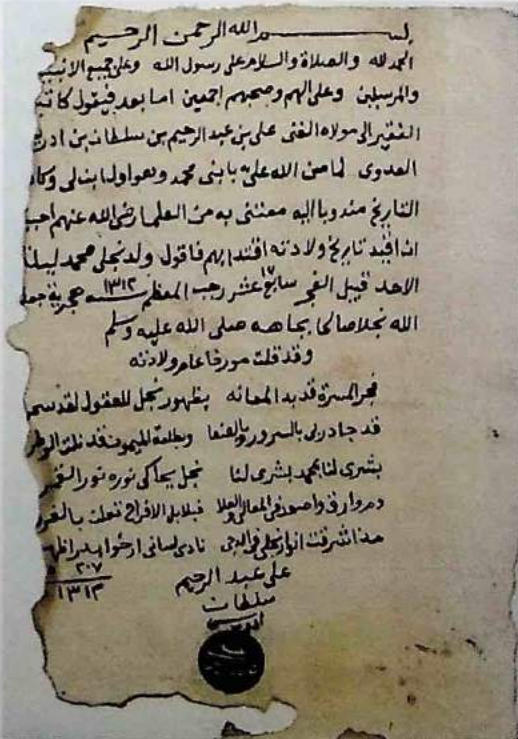 بسم الله الرحمن الرحيم
الحمد لله والصلاة والسلام على رسول الله وعلى جميع الانبيـ
والمرسلين وعلى الهم وصحبهم اجمعين اما بعد فيقول كاتبه
الفقير الى مولاه الغنى على بن عبد الرحيم بن سلطان بن ادريـ
العدوى لما من الله على بابنى محمد وهو اول ابن لى وكان
التاريخ مندوبا اليه معتنى به من العلما رضى الله عنهم احببـ
ان اقيد تاريخ ولادته اقتدا بهم فاقول ولد نجلى محمد ليلة
الاحد قبيل الفجر سابع عشر ١٧ رجب المعظم سنة ١٣١٢ هجرية جعله
الله نجلا صالحا بجاهه صلى الله عليه وسلم
وقد قلت مورخا عام ولادته
فجر المسرة قد بدا لمعانه بظهور نجل للعقول لقد سحر
قد جاد ربى بالسرور وبالهنا وبطلعة الميمون قد نلت الوطر
بشرى لنا بمحمد بشرى لنا نجل يحاكى نوره نور القمر
دم وارق واصعد فى المعالى والعلا فبلابل الافراح
هذا اشرقت انوار نجلى فى الدجى نادى لسانى ارخوا بدر ظهر
٢٠٧
١٣١٢
على عبد الرحيم
سلطان